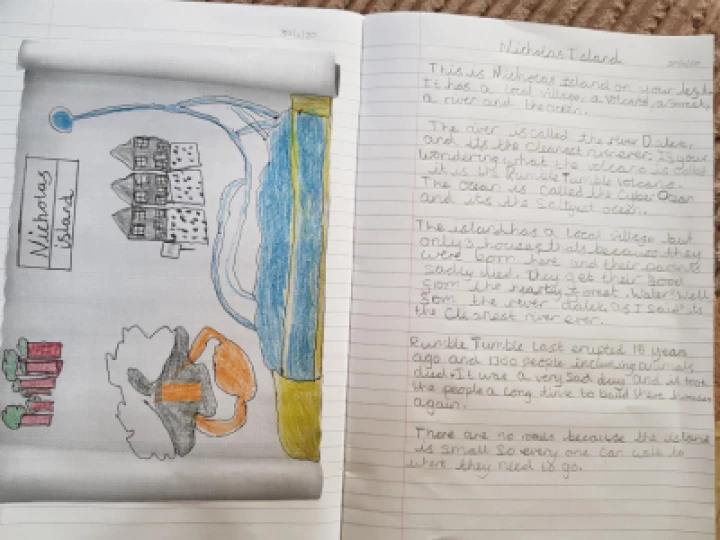 Nicholas
island
Nicholas Island
This is Nicholas Island on your
It has a local village, a volcano, a forest,
a river and the ocean.
The river is called the river Dalek,
and its the cleanest river ever. If your
wondering what the volcano is called
it is the Rumble Tumble Volcano.
The Ocean is called the Cyber Ocean
and its the saltyest ocean.
The island has a local village but
only 3 houses thats because they
were born here and their parents
sadley died. They get their food
from the nearby forest. Water? Well
from the river dalek, as I said its
the cleanest river ever.
Rumble Tumble last erupted 15 years
ago and 1300 people including animals
died. It was a very sad day and it took
the people a long time to build there houses
again.
There are no roads because the island
is small so every one can walk to
where they need to go.